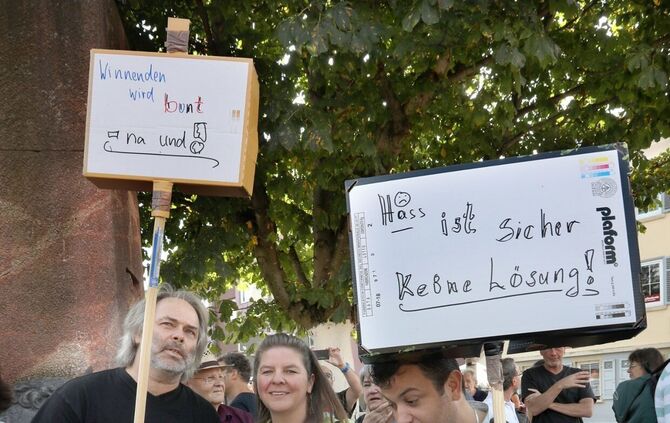 Winnenden
wird bunt
na und!
Hass ist sicher
Keine Lösung!
plaform